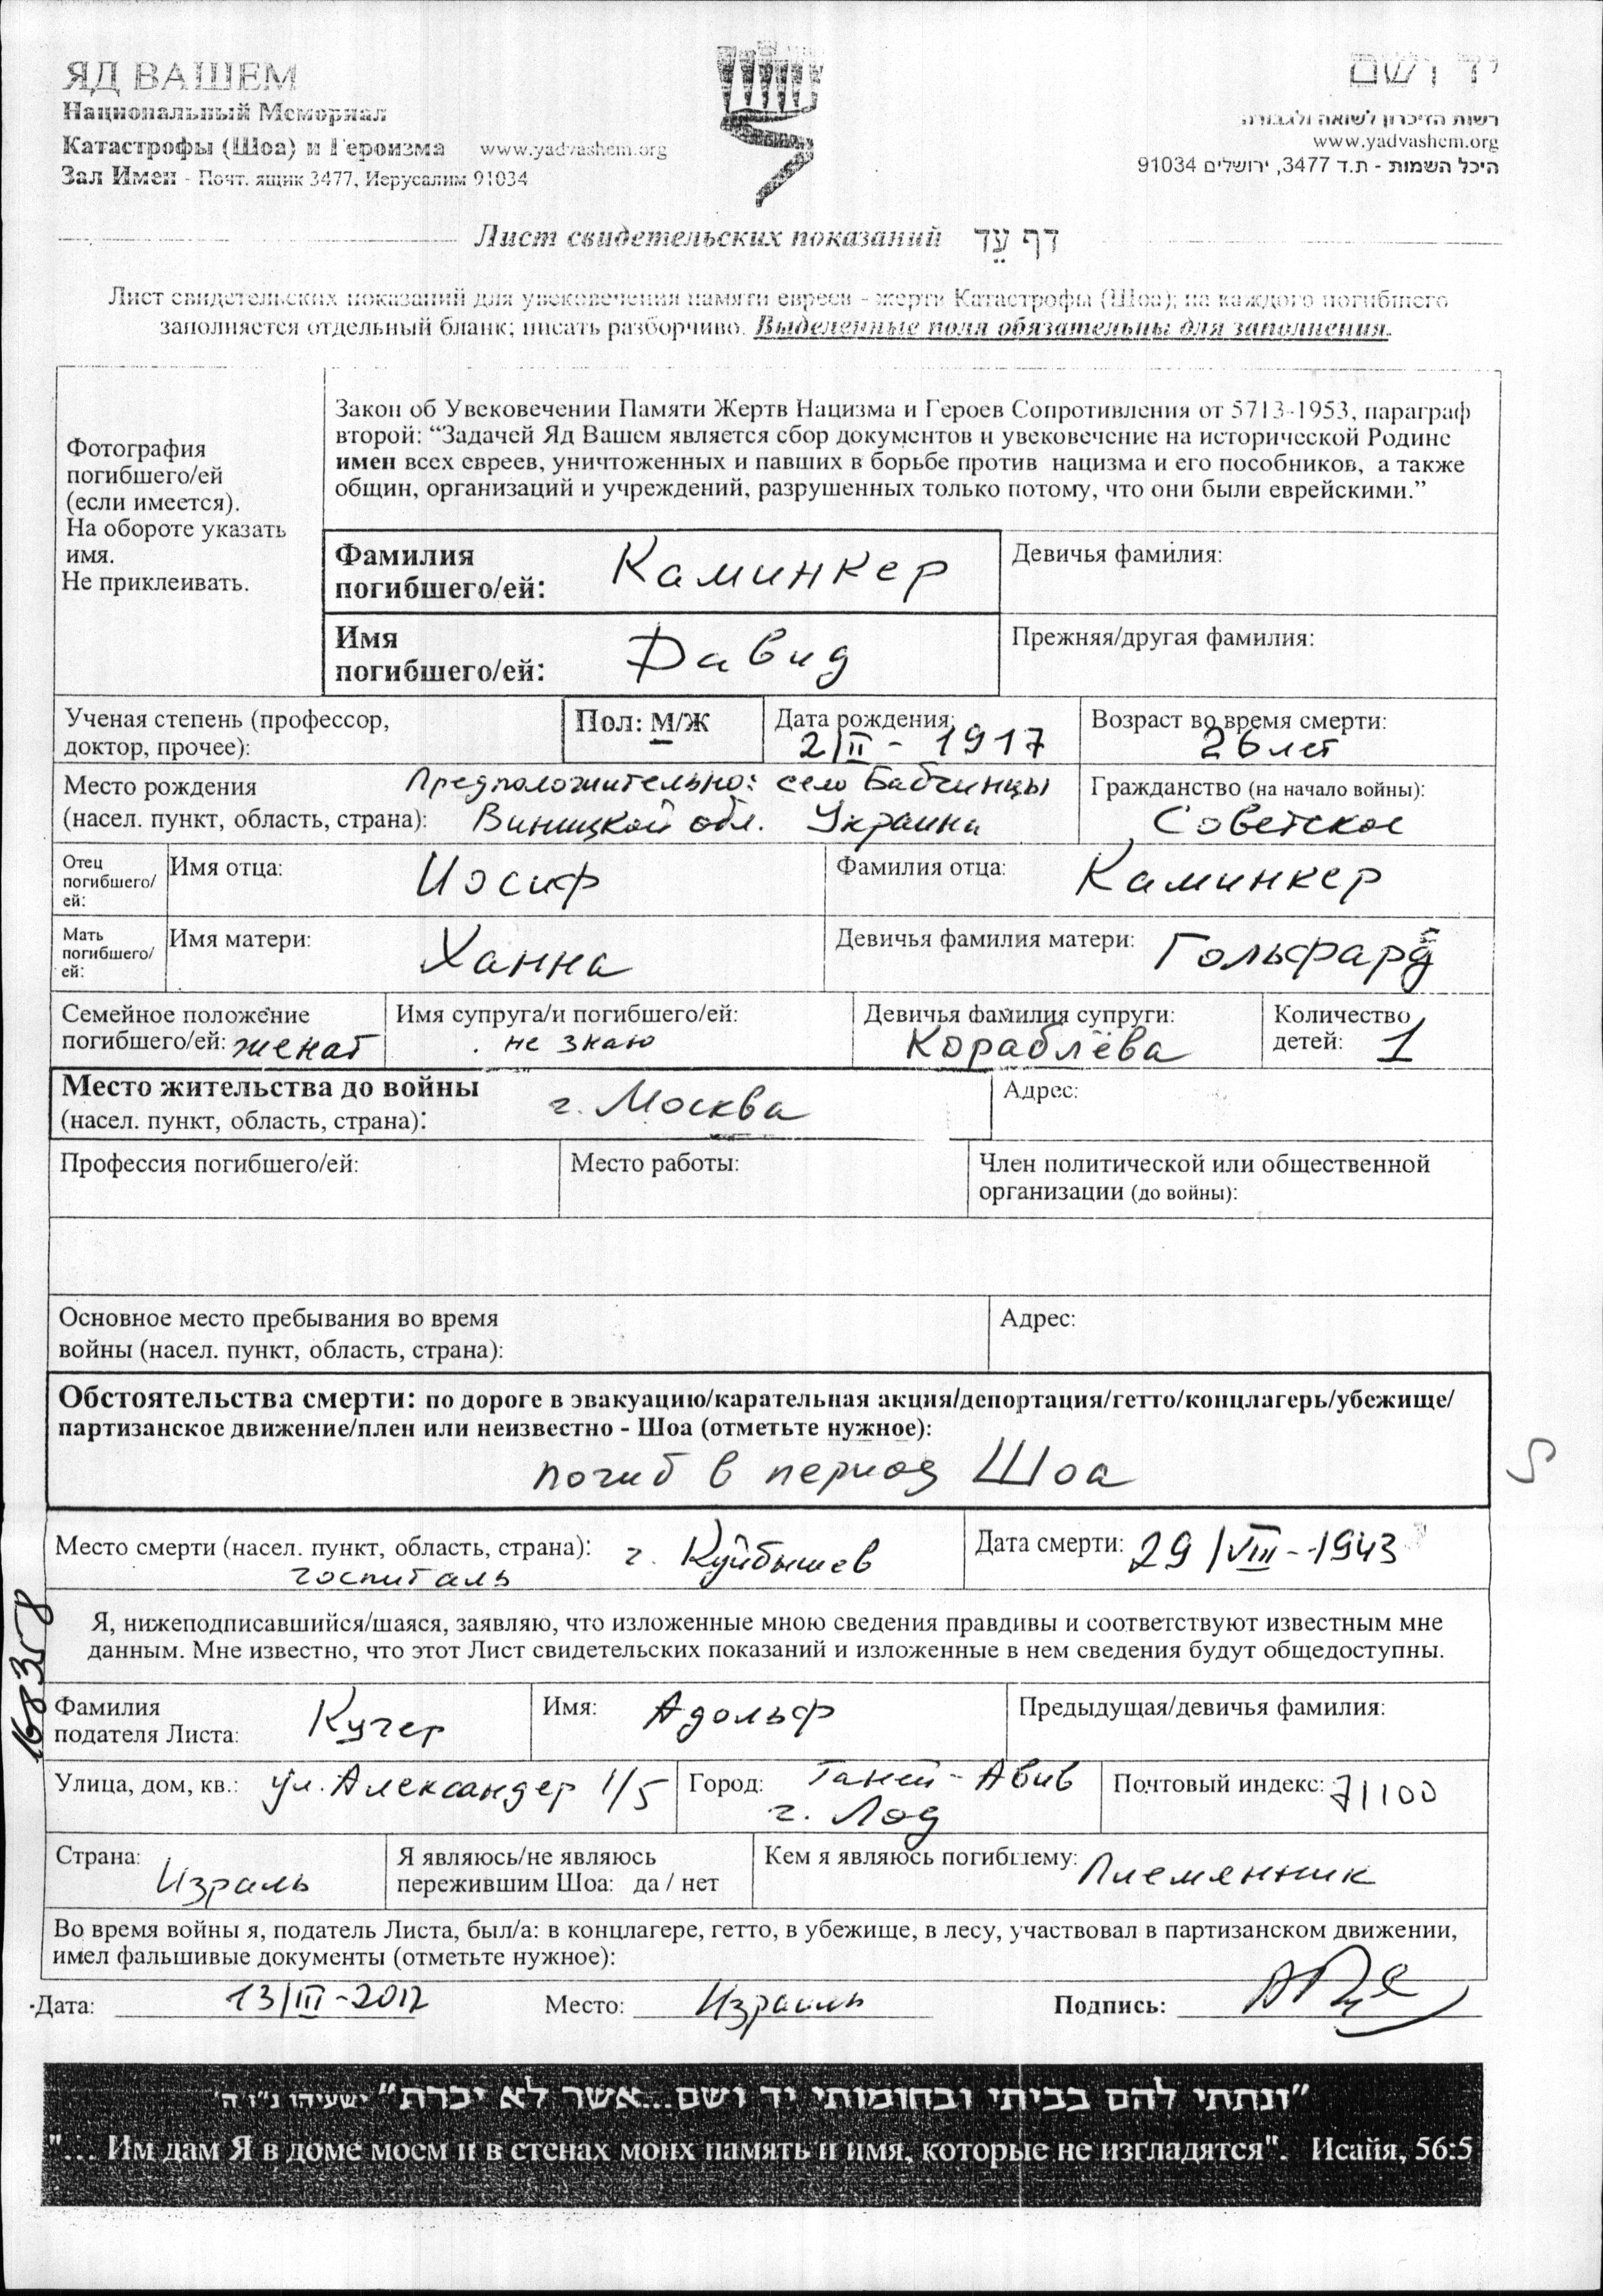 ЯД ВАШЕМ
Национальный Мемориал
Катастрофы (Шоа) и Героизма www.yadvashem.org
Зал Имен - Почт. ящик 3477, Иерусалим 91034
יד ושם
רשות הזיכרון לשואה ולגבורה
www.yadvashem.org
היכל השמות - ת.ד 3477, ירושלים 91034
Лист свидетельских показаний דף עֵד
Лист свидетельских показаний для увековечения памяти евреев - жертв Катастрофы (Шоа); на каждого погибшего
заполняется отдельный бланк; писать разборчиво. Выделенные поля обязательны для заполнения.
Фотография
погибшего/ей
(если имеется).
На обороте указать
имя.
Не приклеивать.
Закон об Увековечении Памяти Жертв Нацизма и Героев Сопротивления от 5713-1953, параграф
второй: “Задачей Яд Вашем является сбор документов и увековечение на исторической Родине
имен всех евреев, уничтоженных и павших в борьбе против нацизма и его пособников, а также
общин, организаций и учреждений, разрушенных только потому, что они были еврейскими.”
Фамилия
погибшего/ей: Каминкер
Девичья фамилия:
Имя
погибшего/ей: Давид
Прежняя/другая фамилия:
Ученая степень (профессор,
доктор, прочее):
Пол: М/Ж
Дата рождения:
2/II - 1917
Возраст во время смерти:
26 лет
Место рождения Предположительно: село Бабчинцы
(насел. пункт, область, страна): Виницкой обл. Украина
Гражданство (на начало войны):
Советское
Отец
погибшего/
ей:
Имя отца: Иосиф
Фамилия отца: Каминкер
Мать
погибшего/
ей:
Имя матери: Ханна
Девичья фамилия матери: Гольфард
Семейное положение
погибшего/ей: женат
Имя супруга/и погибшего/ей:
не знаю
Девичья фамилия супруги:
Кораблёва
Количество
детей: 1
Место жительства до войны
(насел. пункт, область, страна): г. Москва
Адрес:
Профессия погибшего/ей:
Место работы:
Член политической или общественной
организации (до войны):
Основное место пребывания во время
войны (насел. пункт, область, страна):
Адрес:
Обстоятельства смерти: по дороге в эвакуацию/карательная акция/депортация/гетто/концлагерь/убежище/
партизанское движение/плен или неизвестно - Шоа (отметьте нужное):
погиб в период Шоа
Место смерти (насел. пункт, область, страна): г. Куйбышев
госпиталь
Дата смерти: 29/VIII - 1943
Я, нижеподписавшийся/шаяся, заявляю, что изложенные мною сведения правдивы и соответствуют известным мне
данным. Мне известно, что этот Лист свидетельских показаний и изложенные в нем сведения будут общедоступны.
168358
Фамилия
подателя Листа: Кучер
Имя: Адольф
Предыдущая/девичья фамилия:
Улица, дом, кв.: ул. Александер 1/5
Город: Ганей-Авив
г. Лод
Почтовый индекс: 71100
Страна:
Израль
Я являюсь/не являюсь
пережившим Шоа: да / нет
Кем я являюсь погибшему: Племянник
Во время войны я, податель Листа, был/а: в концлагере, гетто, в убежище, в лесу, участвовал в партизанском движении,
имел фальшивые документы (отметьте нужное):
Дата: 13/III-2012 Место: Израиль Подпись:
"ונתתי להם בביתי ובחומותי יד ושם...אשר לא יכרת" ישעיהו נ"ו ה'
"... Им дам Я в доме моем и в стенах моих память и имя, которые не изгладятся". Исайя, 56:5